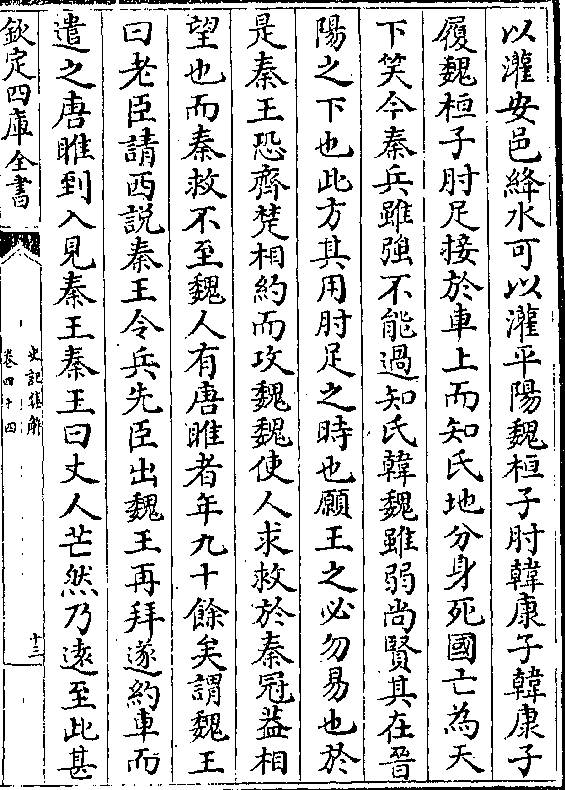 以灌安邑絳水可以灌平陽魏桓子肘韓康子韓康子
履魏桓子肘足接於車上而知氏地分身死國亡為天
下笑今秦兵雖強不能過知氏韓魏雖弱尚賢其在晉
陽之下也此方其用肘足之時也願王之必勿易也於
是秦王恐齊楚相約而攻魏魏使人求救於秦冠蓋相
望也而秦救不至魏人有唐睢者年九十餘矣謂魏王
曰老臣請西說秦王令兵先臣出魏王再拜遂約車而
遣之唐睢到入見秦王秦王曰丈人芒然乃遠至此甚
欽定四庫全書
史記集解
卷四十四
十三